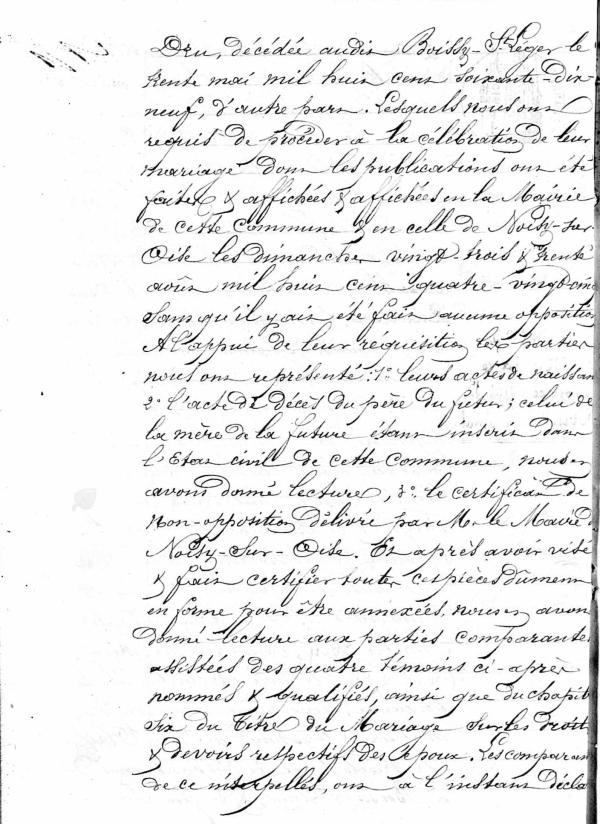 Dru, décédée audit Boissy-St Léger le
trente mai mil huit cent soixante-dix
neuf, d'autre part. Lesquels nous ont
requis de procéder à la célébration de leur
mariage dont les publications ont été
faites & affichées & affichées en la Mairie
de cette Commune & en celle de Noisy-sur-
Oise les dimanches vingt-trois & trente
août mil huit cent quatre-vingt onz
sans qu'il y ait été fait aucune opposition
A l'appui de leur réquisition les parties
nous ont représenté: 1° leurs actes de naissan
2° l'acte de décès du père du futur; celui de
la mère de la future étant inscrit dans
l'Etat civil de cette commune, nous en
avons donné lecture, 3° le certificat de
non-opposition délivré par Mr le Maire d
Noisy-sur-Oise. Et après avoir visé
& fait certifier toutes ces pièces dûment
en forme pour être annexées, nous en avon
donné lecture aux parties comparantes
assistées des quatre témoins ci-après
nommés & qualifiés, ainsi que du chapit
six du Titre du Mariage sur les droits
& devoirs respectifs des époux. Les comparan
de ce interpellés, ont à l'instant décla